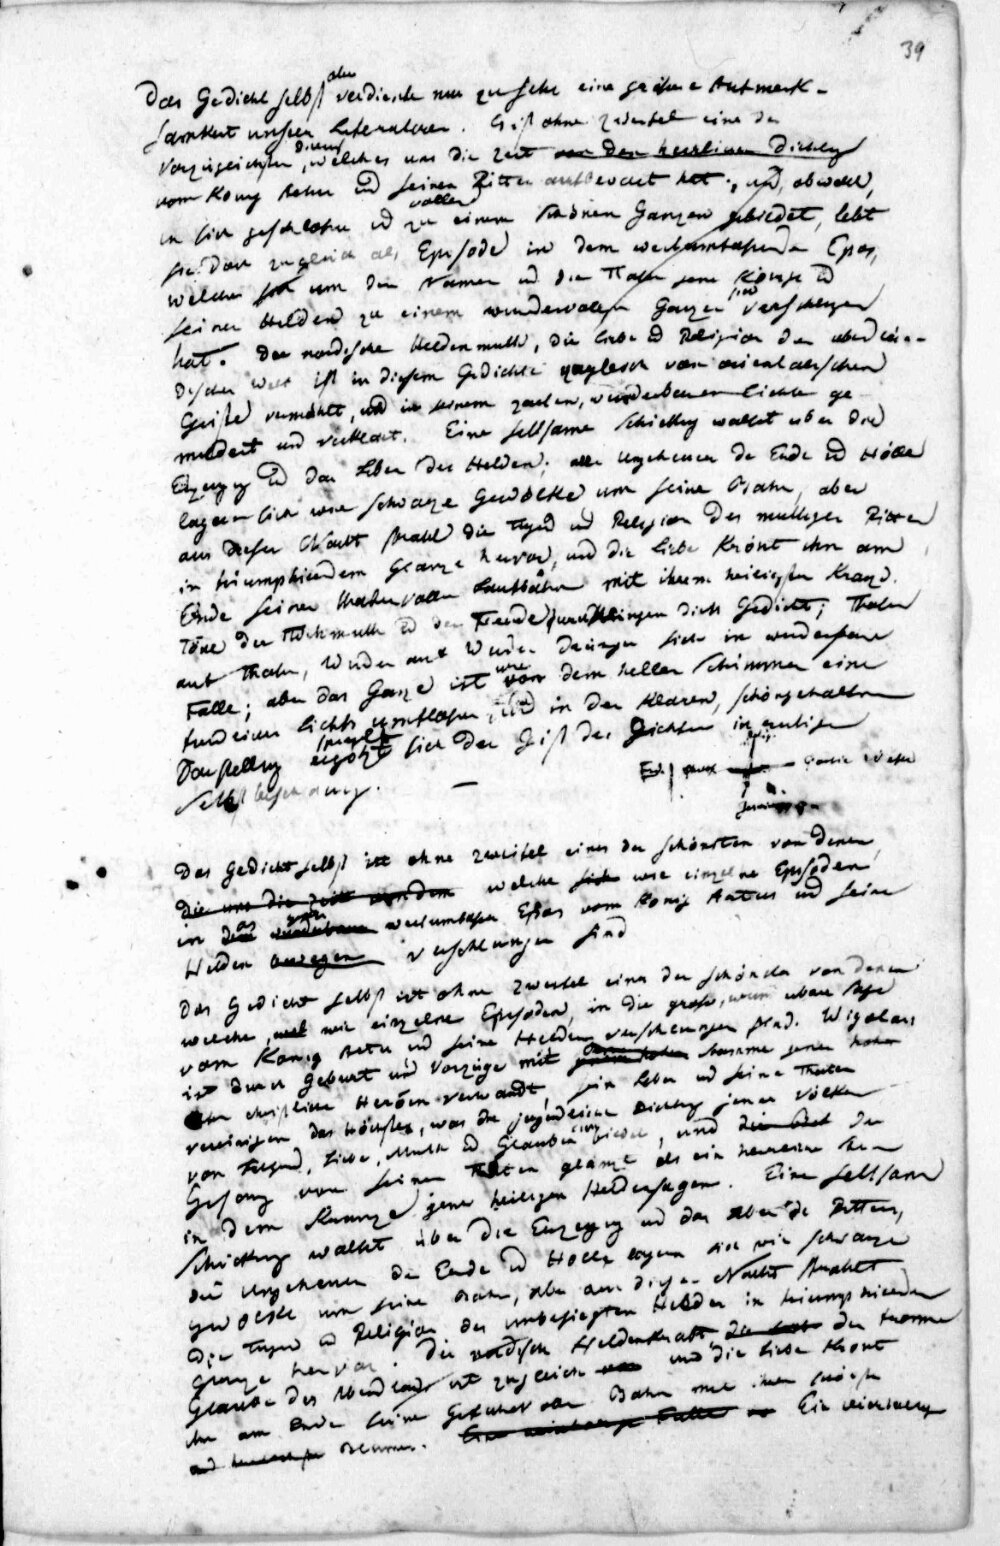 39
Das Gedicht selbst aber verdiente nur zu sehr eine größere Aufmerk-
samkeit unserer Literatoren. Es ist ohne Zweifel eine der
vorzüglichsten, welches uns die Zeit von den herrlichen Dichtung
vom König Artus und seinen Rittern aufbewart hat; und, obwohl,
in sich geschlossen und zu einem schönen Ganzen gebildet, lebt
sie dort zugleich als Episode in dem weltumfassenden Epos,
welches sich um den Namen und die Thaten jenes Königs und
seiner Helden zu einem wundervollen Ganzen verschlungen
hat. Der nordische Heldenmuth, die Liebe und Religion der abendlän-
dischen Welt ist in diesem Gedichte zugleich vom orientalischen
Geiste vermählt, und in seinem zarten, wunderbaren Lichte ge-
mildert und verklärt. Eine seltsame Schickung waltet über die
Erzeugung und das Leben des Helden; alle Ungeheuer der Erde und Hölle
lagern sich wie schwarze Gewölke um seine Bahn, aber
aus dieser Nacht stralt die Tugend und Religion des muthigen Ritters
in triumphirendem Glanze hervor, und die Liebe krönt ihn am
Ende seiner thatenvollen Laufbahn mit ihrem heiligsten Kranz.
Töne der Wehmuth und der Freude durchklingen dieß Gedicht; Thaten
auf Thaten, Wunder auf Wunder drängen sich in wunderbarer
Fülle; aber das Ganze ist wie von dem hellen Schimmer eines
Lichts umflossen, und in der klaren, schöngehaltenen
Darstellung ergötzt sich der Geist des Dichters in ruhiger
Selbstbeschauung.
Das Gedicht selbst ist ohne Zweifel eines der schönsten von denen,
die uns die Zeit von dem welche sich wie einzelne Episoden
in das wunderbare weltumfassende Epos vom König Artus und seinen
Helden verschlungen sind
Das Gedicht selbst ist ohne Zweifel eines der schönsten von denen
welche, wie einzelne Episoden, in die große, wunderbare Sage
vom König Artus und seinen Helden verschlungen sind. Wigolais
ist durch Geburt und Vorzüge mit dem Stamme jener hohen
christlichen Heroen verwandt, sein Leben und seine Thaten
vereinigen das Höchste, was die jugendliche Dichtung jener Völker
von Tugend, Liebe, Muth und Glauben bildet, und der
Gesang von seinen Thaten glänzt als ein
in dem Kranze jener heiligen Heldensagen. Eine seltsame
Schickung waltet über die Erzeugung und das Leben des Ritters,
die Ungeheuer der Erde und Hölle lagern sich wie schwarze
Gewölke um seine Bahn, aber aus dieser Nacht stralt
die Tugend und Religion des unbesiegten Helden in triumphirendem
Glanze hervor. Die nordische Heldenkraft der fromme
Glaube des Abendlands ist zugleich und die Liebe krönt
ihn am Ende seiner Bahn mit ihren
Blumen. Eine Fülle Ein